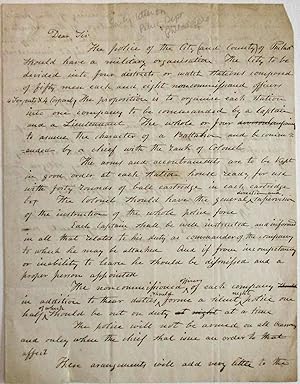 Early letter on
Police Dept
Philada
Dear Sir
The police of the City (and County) of Philad
should have a military organisation. The City to be
decided into four districts or watch stations composed
of fifty men each and eight noncommissioned officers
The proposition is to organise each station
into one company to be commanded by a Captain
and a Lieutenant. The whole or four
to assume the character of a Battalion and be comm-
anded by a chief with the rank of Colonel.
The arms and accoutrements are to be kept
in good order at each station house ready for use
with forty rounds of ball cartridge in each cartridge
box. The Colonel should have the general supervision
of the instruction of the whole police force
Each Captain shall be well instructed and informed
in all that relates to his duty as commander of the company
to which he may be attached. And if from incompetency
or inability to learn he should be dismissed and a
proper person appointed
The noncommissioned officers of each company
in addition to their duties formed a silent police one
half should be out on duty at night at a time
The police will not be armed on all
and only when the chief shall issue an order to that
effect
These arrangements will add very little to the